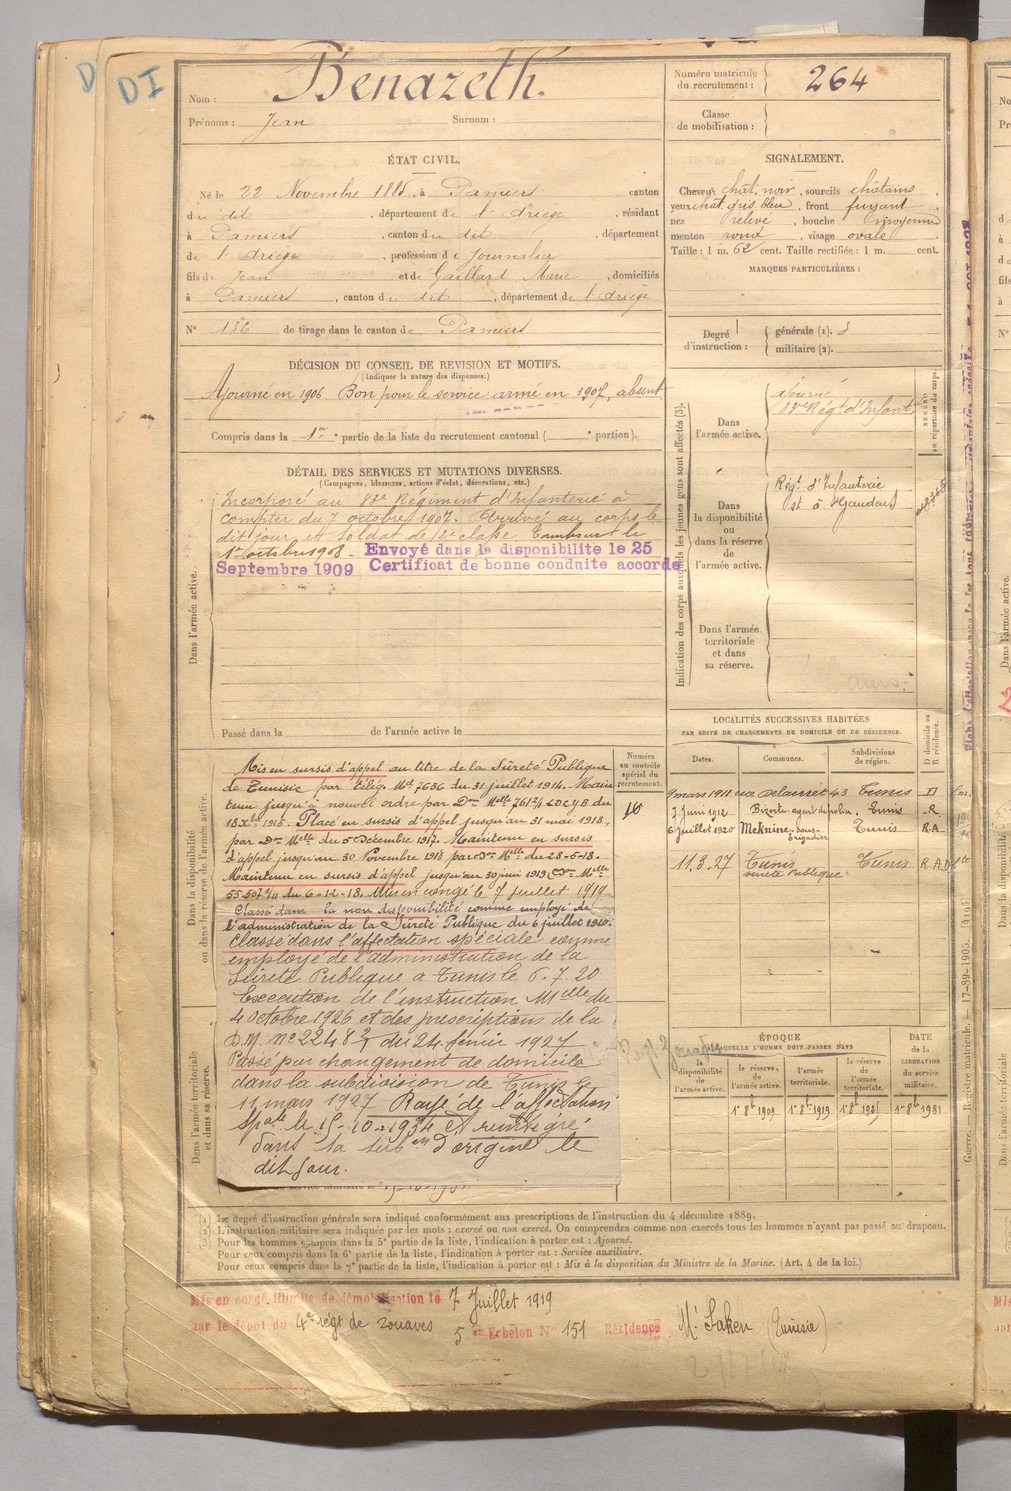 DI
Nom : Benazeth.
Prénoms : Jean Surnom :
Numéro matricule du recrutement : 264
Classe de mobilisation :
ÉTAT CIVIL.
Né le 22 Novembre 1885, à Pamiers canton
du dit , département de l'Ariège , résidant
à Pamiers , canton du dit , département
de l'Ariège , profession de Journalier
fils de Jean et de Gaillard Marie , domiciliés
à Pamiers , canton du dit , département de l'Ariège
N° 136 de tirage dans le canton de Pamiers
SIGNALEMENT.
Cheveux chât. noir, sourcils châtains
yeux chât. gris bleu, front fuyant
nez relevé , bouche moyenne
menton rond , visage ovale
Taille : 1 m. 62 cent. Taille rectifiée : 1 m. cent.
MARQUES PARTICULIÈRES :
Degré d'instruction : générale (1). 3
militaire (2).
DÉCISION DU CONSEIL DE REVISION ET MOTIFS.
(Indiquer la nature des dispenses.)
Ajourné en 1906 Bon pour le service armé en 1907, absent
Compris dans la 1re partie de la liste du recrutement cantonal ( portion).
DÉTAIL DES SERVICES ET MUTATIONS DIVERSES.
(Campagnes, blessures, actions d'éclat, décorations, etc.)
Dans l'armée active.
Incorporé au 83e Régiment d'Infanterie à
compter du 7 octobre 1907. Arrivé au corps le
dit jour et soldat de 2e classe. Tambour le
1er octobre 1908 - Envoyé dans la disponibilite le 25
Septembre 1909 Certificat de bonne conduite accordé
Passé dans la de l'armée active le
Indication des corps auxquels les jeunes gens sont affectés (3).
NUMÉRO au répertoire du corps.
Dans l'armée active.
83e Régt d'Infanterie
Dans la disponibilité ou dans la réserve de l'armée active.
Régt d'Infanterie
st à St Gaudens
Dans l'armée territoriale et dans sa réserve.
LOCALITÉS SUCCESSIVES HABITÉES
PAR SUITE DE CHANGEMENTS DE DOMICILE OU DE RÉSIDENCE.
Dates. Communes. Subdivisions de région. D domicile ou R résidence.
9 mars 1911 43 Tunis D
7 Juin 1912 Bizerte agent de police. Tunis R
6 Juillet 1920 Meknine sous-brigadier Tunis R.A
11.3.27 Tunis sureté Publique Tunis R A D
Dans la disponibilité ou dans la réserve de l'armée active.
Numéro au contrôle spécial du recrutement.
Mis en sursis d'appel au titre de la Sûreté Publique
de Tunisie par télég. Mel 7656 du 31 juillet 1914. Main
tenu jusqu'à nouvel ordre par Don Melle 76124 du
18 Xbre 1915. Placé en sursis d'appel jusqu'au 31 mai 1918,
par Don Melle du 5 Décembre 1917. Maintenu en sursis
d'appel jusqu'au 30 Novembre 1918 par Don Melle du 28-5-18.
Maintenu en sursis d'appel jusqu'au 30 juin 1919 Don Melle
55.507 9/11 du 6-12-18. Mis en congé le 7 juillet 1919
Classé dans la non disponibilité comme employé de
l'administration de la Sûreté Publique du 6 juillet 1920.
Classé dans l'affectation spéciale comme
employé de l'administration de la
Sûreté Publique à Tunis le 6.7.20
Execution de l'instruction Melle du
4 octobre 1926 et des prescriptions de la
D.M. n° 2248 du 24 février 1927
Passé par changement de domicile
dans la subdivision de Tunis le
11 mars 1927 Rayé de l'affectation
spale le 15-10-1934 et réintégré
dans la subon d'origine le
dit jour.
Dans l'armée territoriale et dans sa réserve.
ÉPOQUE
À LAQUELLE L'HOMME DOIT PASSER DANS
la disponibilité de l'armée active. la réserve de l'armée active. l'armée territoriale. la réserve de l'armée territoriale.
DATE de la LIBÉRATION du service militaire.
1er 8bre 1909 1er 8bre 1919 1er 8bre 1925 1er 8bre 1931
(1) Le degré d'instruction générale sera indiqué conformément aux prescriptions de l'instruction du 4 décembre 1889.
(2) L'instruction militaire sera indiquée par les mots : exercé ou non exercé. On comprendra comme non exercés tous les hommes n'ayant pas passé au drapeau.
(3) Pour les hommes compris dans la 5e partie de la liste, l'indication à porter est : Ajourné.
Pour ceux compris dans la 6e partie de la liste, l'indication à porter est : Service auxiliaire.
Pour ceux compris dans la 7e partie de la liste, l'indication à porter est : Mis à la disposition du Ministre de la Marine. (Art. 4 de la loi.)
Guerre. — Registre matricule. — 17-89-1905. [4104]
Mis en congé illimité de démobilisation le 7 Juillet 1919
par le dépôt du 4e régt de zouaves 5e Echelon N° 151 Résidence M. Saken (Tunisie)